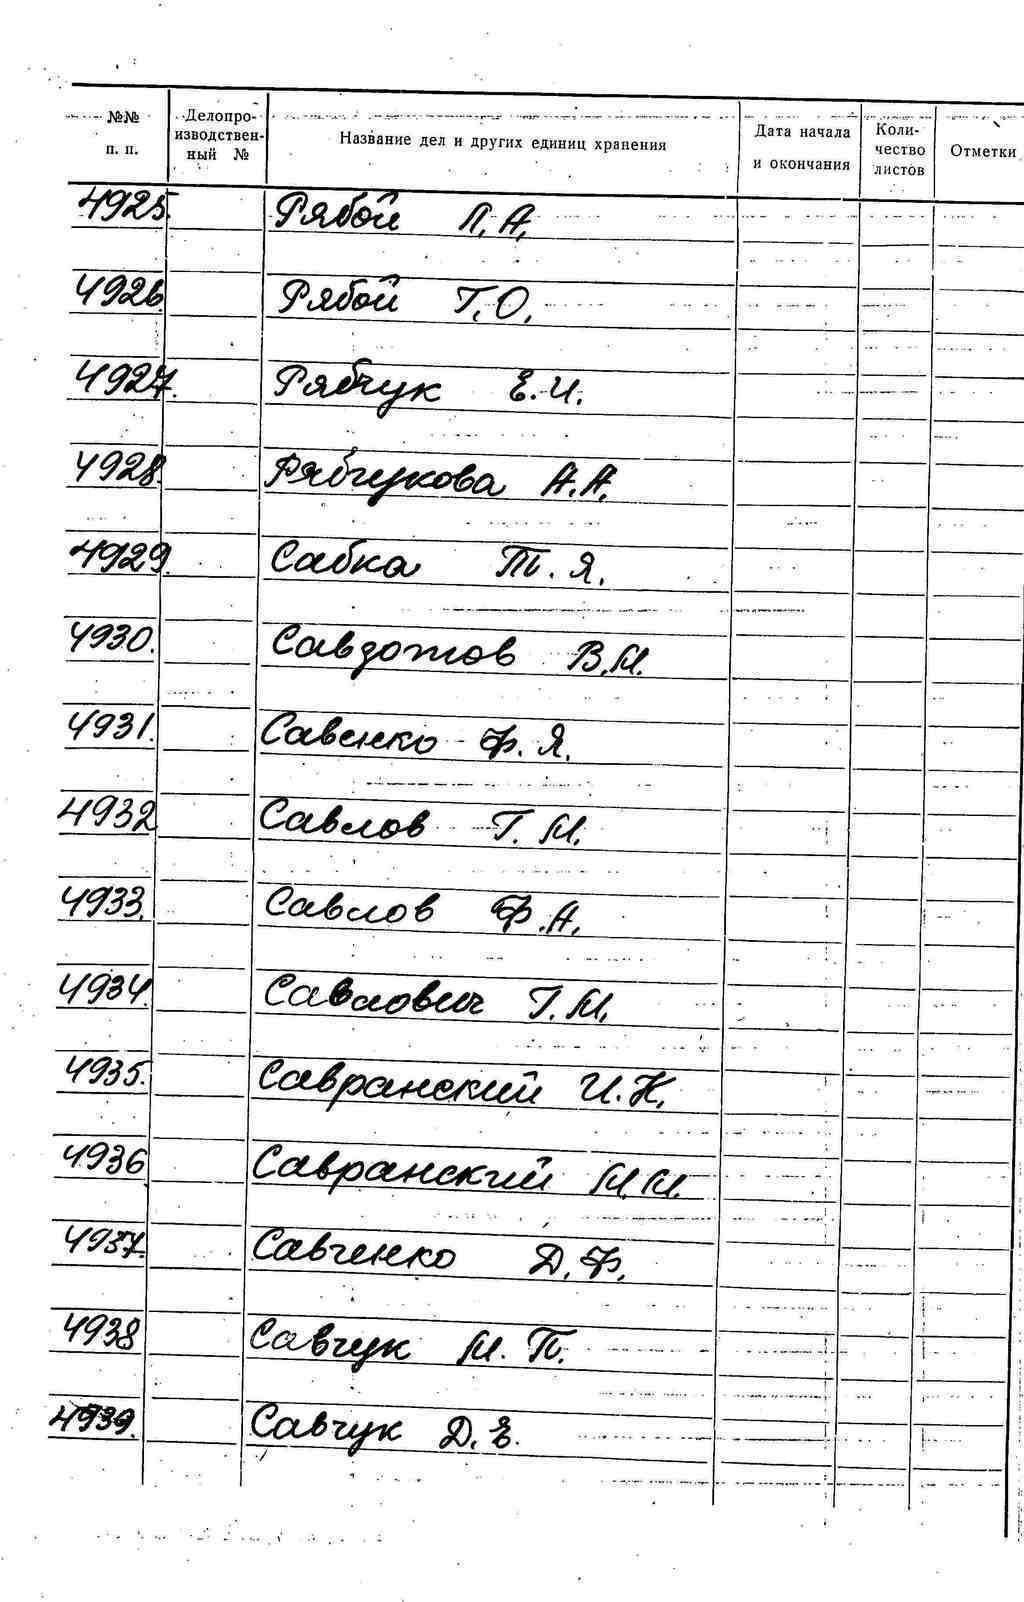 №№ п. п. Делопроизводственный № Название дел и других единиц хранения Дата начала и окончания Количество листов Отметки
4925. Рябой Л. А.
4926. Рябой Т. О.
4927. Рябчук Е. И.
4928. Рябчукова А. А.
4929. Сабка Т. Я.
4930. В. М.
4931. Савенко Ф. Я.
4932 Савлов Г. М.
4933. Савлов Ф. А.
4934. Савлович Г. М.
4935. Савранский И. Н.
4936 Савранский М. М.
4937. Савченко Д. Ф.
4938 Савчук М. П.
4939. Савчук Д. Е.